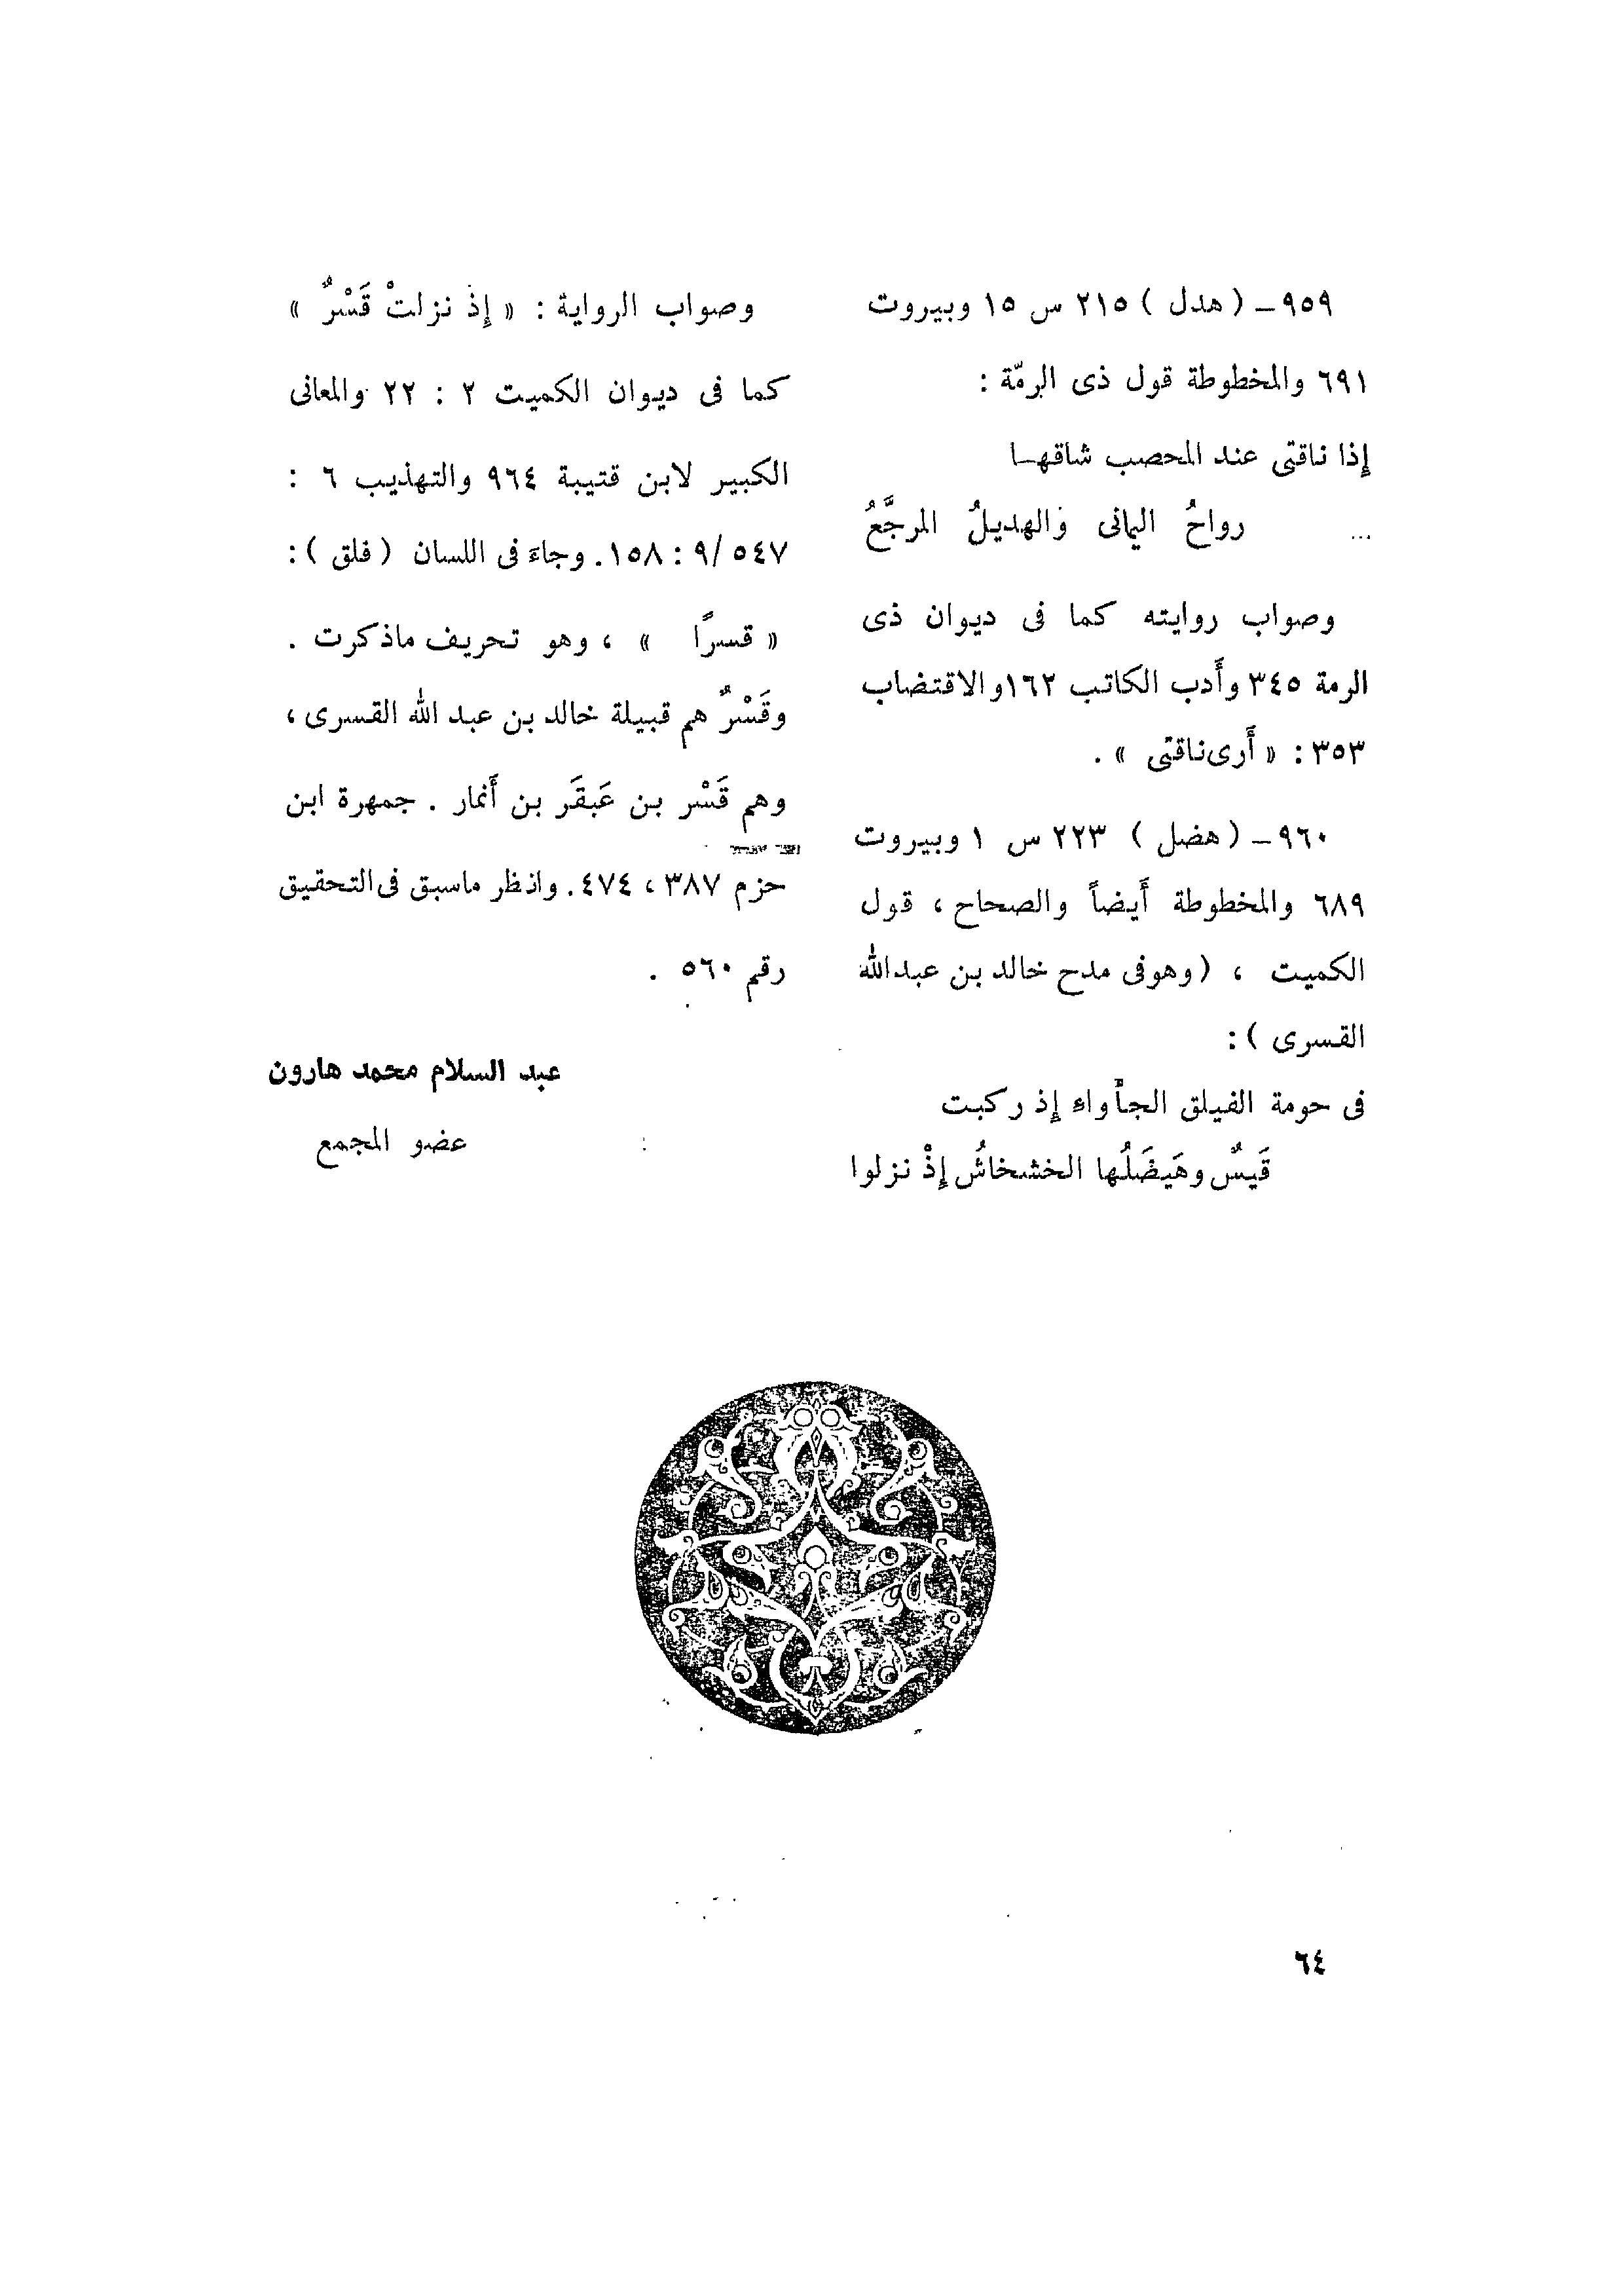 ٩٥٩ – ( هدل ) ٢١٥ س ١٥ وبيروت
٦٩١ والمخطوطة قول ذى الرمّة :
إذا ناقتى عند المحصب شاقهـا
رواحُ اليمانى والهديلُ المرجَّعُ
...
وصواب روايته كما فى ديوان ذى
الرمة ٣٤٥ وأَدب الكاتب ١٦٢ والاقتضاب
٣٥٣ : « أَرى ناقتى » .
٩٦٠ – ( هضل ) ٢٢٣ س ١ وبيروت
٦٨٩ والمخطوطة أَيضاً والصحاح ، قول
الكميت ، ( وهوفى مدح خالد بن عبدالله
القسرى ) :
فى حومة الفيلق الجأواء إذ ركبت
قَيسٌ وهَيضَلُها الخشخاشُ إذْ نزلوا
وصواب الرواية : « إذْ نزلتْ قَسْرٌ »
كما فى ديوان الكميت ٢ : ٢٢ والمعانى
الكبير لابن قتيبة ٩٦٤ والتهذيب ٦ :
٥٤٧ /٩ : ١٥٨ . وجاءَ فى اللسان ( فلق ) :
« قسرًا » ، وهو تحريف ماذكرت .
وقَسْرٌ هم قبيلة خالد بن عبد الله القسرى ،
وهم قَسْر بن عَبقَر بن أَنمار . جمهرة ابن
حزم ٣٨٧ ، ٤٧٤ . وانظر ماسبق فى التحقيق
رقم ٥٦٠ .
عبد السلام محمد هارون
عضو المجمع
٦٤